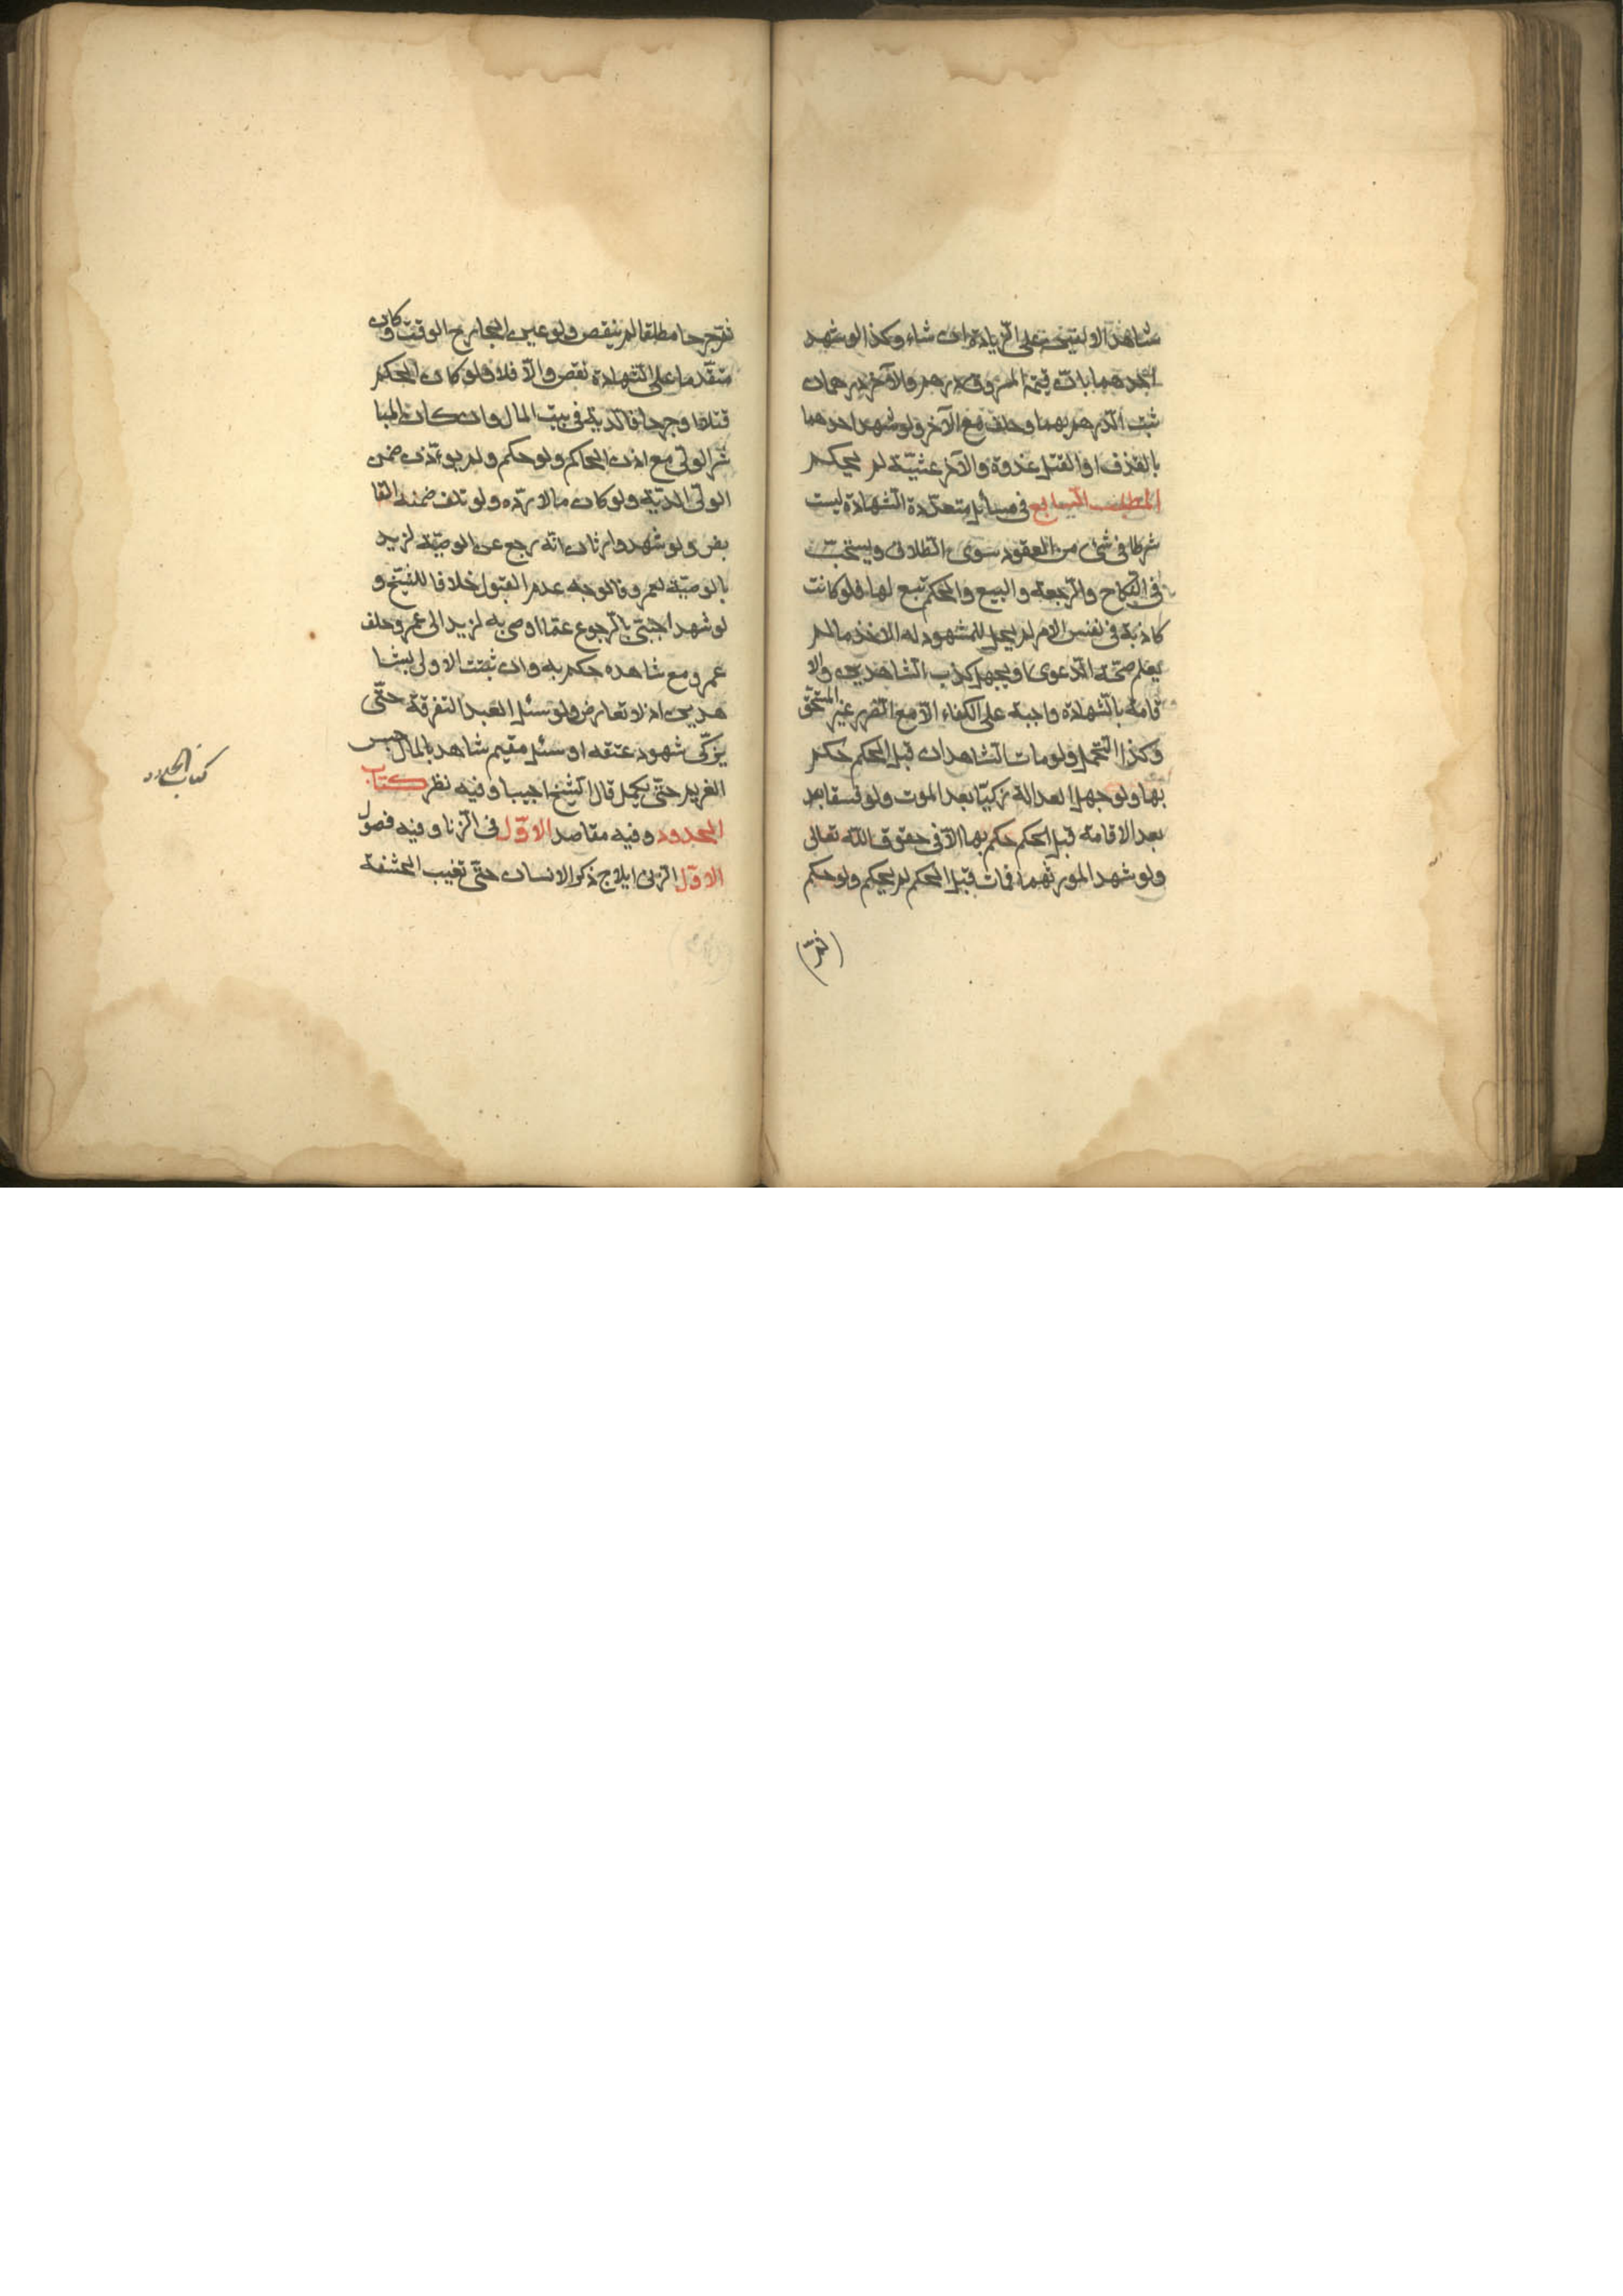 شاهد الاولیتین علی الزیادة ان شاء وکذا لو شهد
احدهما بانّ قیمة المسروق درهم والآخر درهمان
ثبت الدرهم بهما وحلف مع الآخر ولو شهد احدهما
بالقذف او القتل غدوة والآخر عشیّة لم یحکم
المطلب السابع فی مسائل متعدّدة الشهادة لیست
شرطا فی شیء من العقود سوی الطلاق ویستحبّ
فی النکاح والرجعة والبیع والحکم تبع لها فلو کانت
کاذبة فی نفس الامر لم یحل للمشهود له الاخذ ما لم
یعلم صحّة الدعوی او یجهل کذب الشاهدین والا
قامة بالشهادة واجبة علی الکفاء الّا مع الضرر غیر المستحق
وکذا التحمل ولو مات الشاهدان قبل الحکم حکم
بها ولو جهل العدالة زکیّا بعد الموت ولو فسقا بعد
بعد الاقامة قبل الحکم حکم بها الّا فی حقوق الله تعالی
ولو شهدا لمورثهما فمات قبل الحکم لم یحکم ولو حکم
فجرحا مطلقا لم ینقض ولو عیّن الجارح الوقت وکان
متقدّما علی الشهادة نقض والّا فلا ولو کان الحکم
قتلا او جرحا فالدیة فی بیت المال وان کان المبا
شر الولیّ مع اذن الحاکم ولو حکم ولم یوءذن ضمن
الولیّ الدیّة ولو کان مالا ردّه ولو تلف ضمنه القا
بض ولو شهد وارثان انّه رجع عن الوصیّة لزید
بالوصیّة لعمرو فالوجه عدم القبول خلافا للشیخ و
لو شهد اجنبیّ بالرجوع عمّا اوصی به لزید الی عمرو حلف
عمرو مع شاهده حکم به وان ثبتت الاولی بشا
هدین اذ لا تعارض ولو سئل العبد التفرقة حتّی
یزکّی شهود عتقه او سئل مقیم شاهد بالمال حبس
الغریم حتّی یکمل قال الشیخ اجیبا وفیه نظر کتاب
الحدود وفیه مقاصد الاوّل فی الزنا وفیه فصول
الاوّل الزنی ایلاج ذکر الانسان حتّی تغیب الحشفة
کتاب الحدود